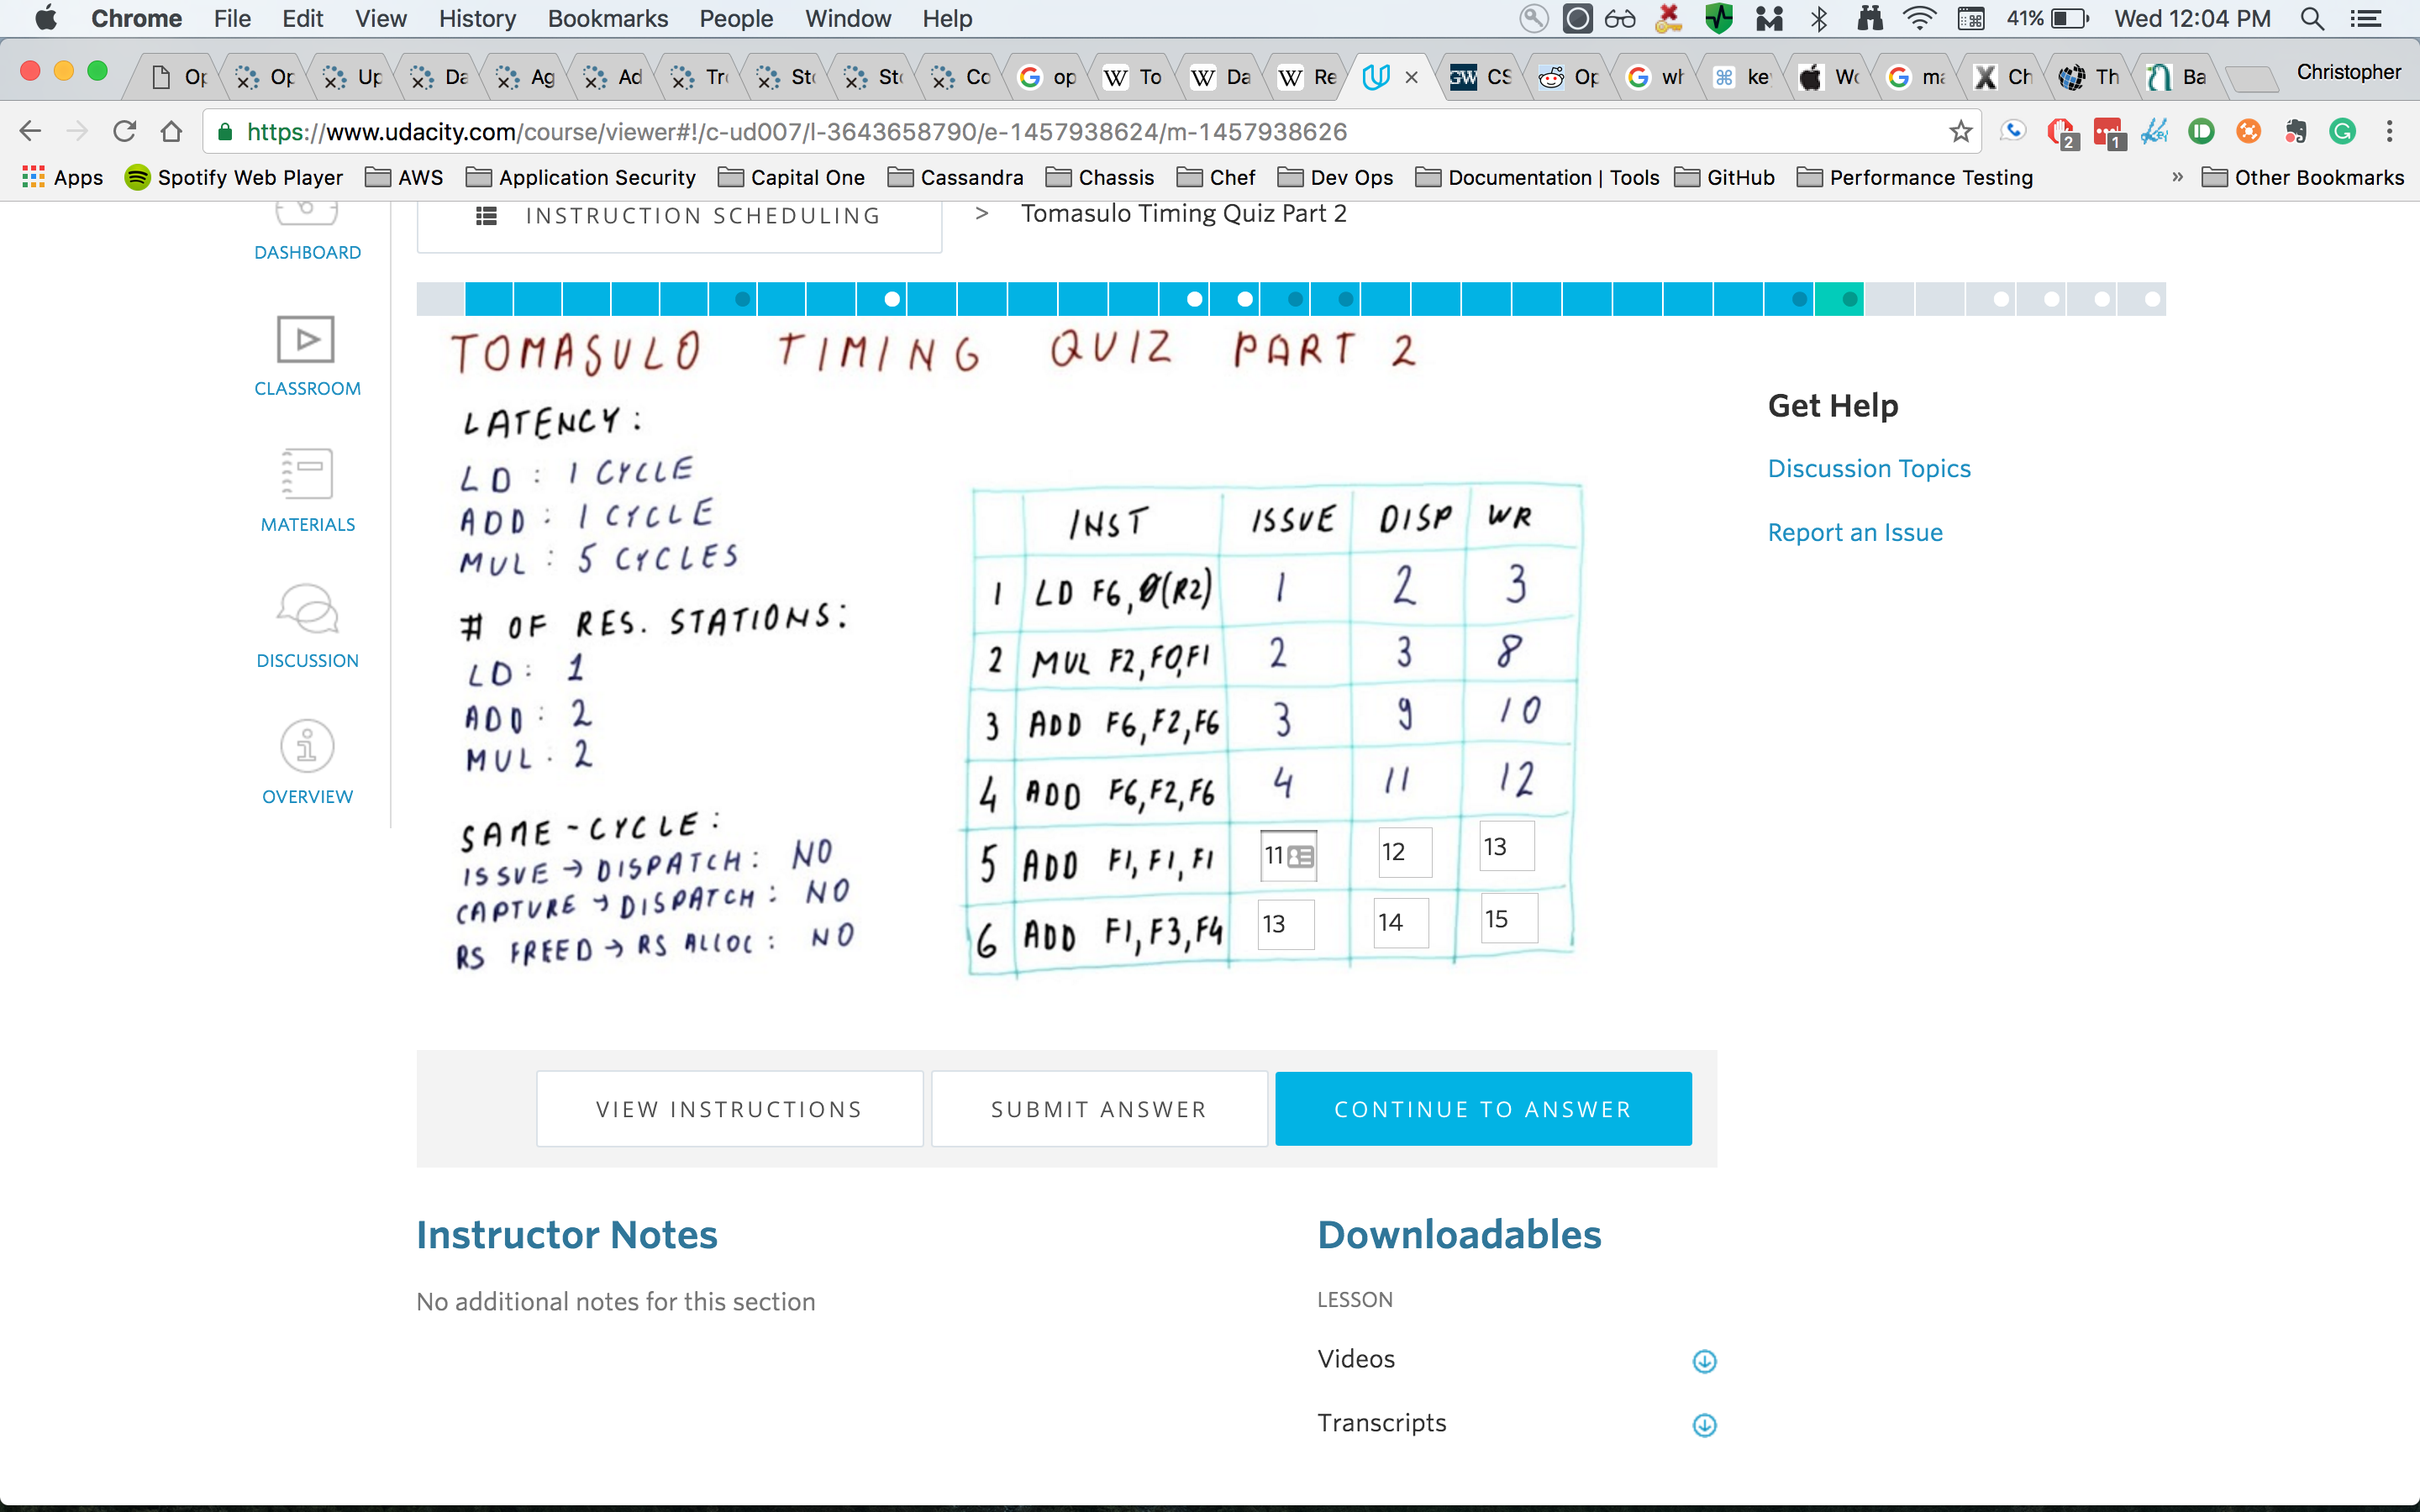 Chrome File Edit View History Bookmarks People Window Help 41% Wed 12:04 PM
Op Op Up Da Ag Ad Tr Sto Sto Co op To Da Re CS Op wh ke Wo ma Ch Th Ba Christopher
https://www.udacity.com/course/viewer#!/c-ud007/l-3643658790/e-1457938624/m-1457938626 2 1
Apps Spotify Web Player AWS Application Security Capital One Cassandra Chassis Chef Dev Ops Documentation | Tools GitHub Performance Testing » Other Bookmarks
INSTRUCTION SCHEDULING > Tomasulo Timing Quiz Part 2
DASHBOARD
CLASSROOM
MATERIALS
DISCUSSION
OVERVIEW
TOMASULO TIMING QUIZ PART 2
LATENCY:
LD: 1 CYCLE
ADD: 1 CYCLE
MUL: 5 CYCLES
# OF RES. STATIONS:
LD: 1
ADD: 2
MUL: 2
SAME-CYCLE:
ISSUE → DISPATCH: NO
CAPTURE → DISPATCH: NO
RS FREED → RS ALLOC: NO
INST ISSUE DISP WR
1 LD F6, 0(R2) 1 2 3
2 MUL F2, F0, F1 2 3 8
3 ADD F6, F2, F6 3 9 10
4 ADD F6, F2, F6 4 11 12
5 ADD F1, F1, F1 11 12 13
6 ADD F1, F3, F4 13 14 15
Get Help
Discussion Topics
Report an Issue
VIEW INSTRUCTIONS SUBMIT ANSWER CONTINUE TO ANSWER
Instructor Notes
No additional notes for this section
Downloadables
LESSON
Videos
Transcripts